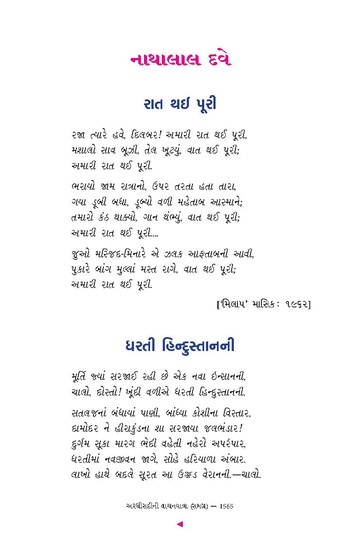 નાથાલાલ દવે
રાત થઈ પૂરી
રજા ત્યારે હવે, દિલબર! અમારી રાત થઈ પૂરી,
મશાલો સાવ બૂઝી, તેલ ખૂટ્યું, વાત થઈ પૂરી;
અમારી રાત થઈ પૂરી.
ભરાયો જામ રાત્રાનો, ઉપર તરતા હતા તારા,
ગયા ડૂબી બધા, ડૂબ્યો વળી મહેતાબ આસ્માને;
તમારો કંઠ થાક્યો, ગાન થંભ્યું, વાત થઈ પૂરી;
અમારી રાત થઈ પૂરી....
જુઓ મસ્જિદ-મિનારે એ ઝલક આફતાબની આવી,
પુકારે બાંગ મુલ્લાં મસ્ત રાગે, વાત થઈ પૂરી;
અમારી રાત થઈ પૂરી.
['મિલાપ' માસિક: ૧૯૬૨]
ધરતી હિન્દુસ્તાનની
મૂર્તિ જ્યાં સરજાઈ રહી છે એક નવા ઇન્સાનની,
ચાલો, દોસ્તો! ખૂંદી વળીએ ધરતી હિન્દુસ્તાનની.
સતલજનાં બંધાયાં પાણી, બાંધ્યા કોશીના વિસ્તાર,
દામોદર ને હીરાકુંડના શા સરજાયા જલભંડાર!
દુર્ગમ સૂકા મારગ ભેદી વહેતી નહેરો અપરંપાર,
ધરતીમાં નવજીવન જાગે, સોહે હરિયાળા અંબાર.
લાખો હાથે બદલે સૂરત આ ઉજ્જડ વેરાનની.—ચાલો.
અરધીસદીની વાચનયાત્રા (સમગ્ર) — 1565